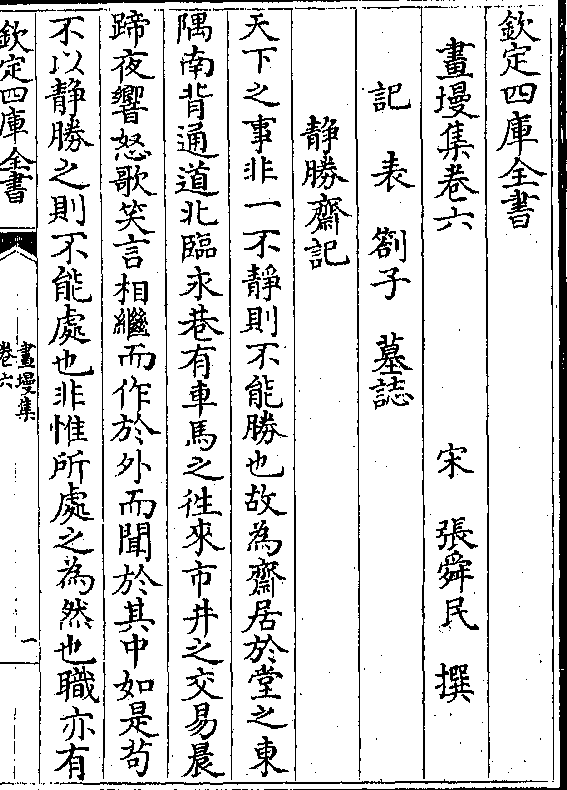 欽定四庫全書
畫墁集卷六
宋 張舜民 撰
記 表 劄子 墓誌
静勝齋記
天下之事非一不靜則不能勝也故為齋居於堂之東
隅南背通道北臨永巷有車馬之徃來市井之交易晨
蹄夜響怒歌笑言相繼而作於外而聞於其中如是苟
不以静勝之則不能處也非惟所處之為然也職亦有
欽定四庫全書
畫墁集
卷六
一